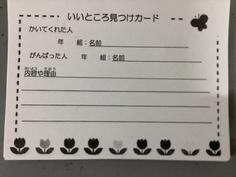 いいところ見つけカード
かいてくれた人
年 組：名前
がんばった人
年 組：名前
ないよう りゆう
内容や理由